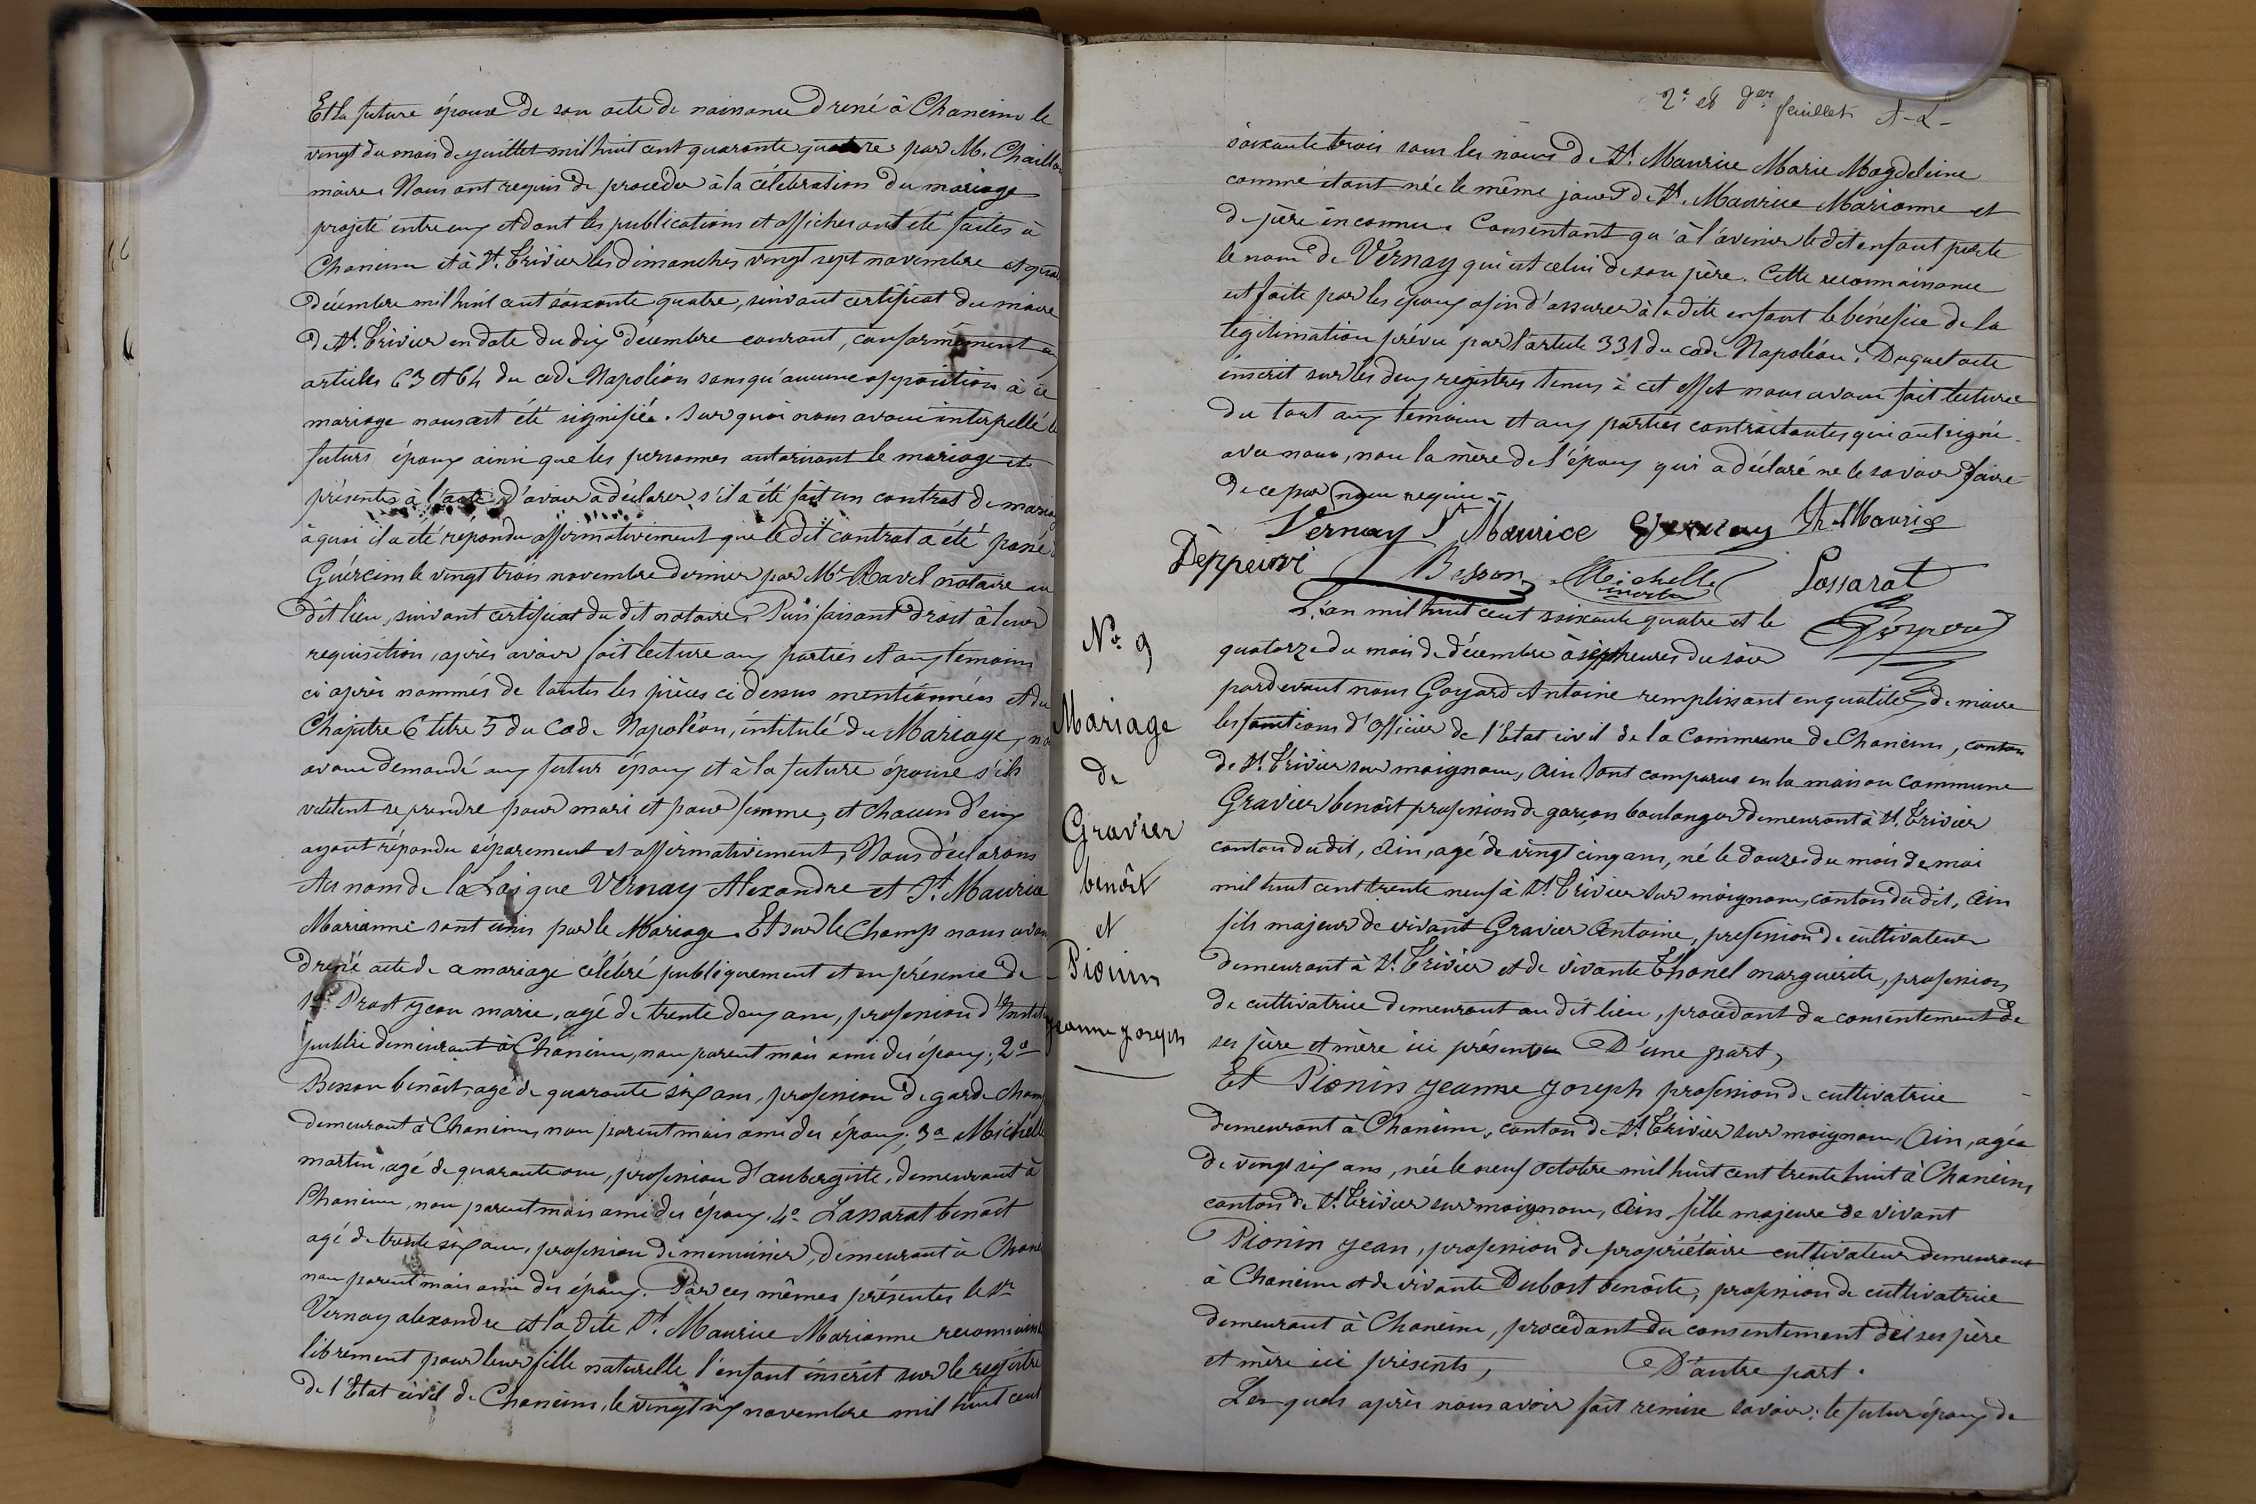 Et la future épouse de son acte de naissance dressé à Chaneins le
vingt du mois de juillet mil huit cent quarante quatre par M. Chaillon
maire. Nous ont requis de procéder à la célébration du mariage
projeté entre eux et dont les publications et affiches ont été faites à
Chaneins et à St. Trivier les dimanches vingt sept novembre et quatre
décembre mil huit cent soixante quatre, suivant certificat du maire
de St. Trivier en date du dix décembre courant, conformément aux
articles 63 et 64 du code Napoléon sans qu'aucune opposition à ce
mariage nous ait été signifiée. Sur quoi nous avons interpellé les
futurs époux ainsi que les personnes autorisant le mariage et
présentes à l'acte d'avoir à déclarer s'il a été fait un contrat de mariage
à quoi il a été répondu affirmativement que le dit contrat a été passé à
Guéreins le vingt trois novembre dernier par Me Ravel notaire au
dit lieu, suivant certificat du dit notaire. Puis faisant droit à leur
réquisition, après avoir fait lecture aux parties et aux témoins
ci après nommés de toutes les pièces ci dessus mentionnées et du
Chapitre 6 titre 5 du Code Napoléon, intitulé du Mariage, nous
avons demandé aux futur époux et à la future épouse s'ils
veulent se prendre pour mari et pour femme, et chacun d'eux
ayant répondu séparement et affirmativement, Nous déclarons
Au nom de la Loi que Vernay Alexandre et St. Maurice
Marianne sont unis par le Mariage. Et sur le Champ nous avons
dressé acte de ce mariage célébré publiquement et en présence de
1o. Prost Jean marie, agé de trente deux ans, profession d'Instit
public demeurant à Chaneins, non parent mais ami des époux; 2o
Besson benoît, agé de quarante six ans, profession de garde cham
demeurant à Chaneins, non parent mais ami des époux; 3o Michelle
martin, agé de quarante ans, profession d'aubergiste, demeurant à
Chaneins, non parent mais ami des époux. 4o Lassarat benoît
agé de trente six ans, profession de menuisier, demeurant à Chane
non parent mais ami des époux. Par ces mêmes présentes le Sr
Vernay alexandre et la dite St. Maurice Marianne reconnaissent
librement pour leur fille naturelle l'enfant inscrit sur le registre
de l'Etat civil de Chaneins, le vingt six novembre mil huit cent
2e et der feuillet A-L-
soixante trois sous les noms de St. Maurice Marie Magdeleine
comme étant née le même jour de St. Maurice Marianne et
de père inconnu. Consentant qu'à l'avenir le dit enfant porte
le nom de Vernay qui est celui de son père. Cette reconnaissance
est faite par les époux afin d'assurer à la dite enfant le bénéfice de la
légitimation prévu par l'article 331 du code Napoléon. Duquel acte
inscrit sur les deux registres tenus à cet effet nous avons fait lecture
du tout aux témoins et aux parties contractantes qui ont signé
avec nous, non la mère de l'époux qui a déclaré ne le savoir faire
de ce par nous requise.
Vernay St Maurice Vernay St. Maurice
Besson Michelle martin Lassarat
No. 9
Mariage
de
Gravier
benoît
et
Pionin
Jeanne Joseph
L'an mil huit cent soixante quatre et le
quatorze du mois de décembre à sept heures du soir
pardevant nous Goyard Antoine remplissant en qualité de maire
les fonctions d'officier de l'Etat civil de la Commune de Chaneins, canton
de St. Trivier sur moignans, Ain Sont comparus en la maison commune
Gravier benoît profession de garçon boulanger demeurant à St. Trivier
canton du dit, Ain, agé de vingt cinq ans, né le douze du mois de mai
mil huit cent trente neuf à St. Trivier sur moignans, canton du dit, Ain
fils majeur de vivant Gravier Antoine, profession de cultivateur
demeurant à St. Trivier et de vivante Thonel marguerite, profession
de cultivatrice demeurant au dit lieu, procédant du consentement de
ses père et mère ici présents D'une part,
Et Pionin Jeanne Joseph profession de cultivatrice
demeurant à Chaneins, canton de St. Trivier sur moignans, Ain, agée
de vingt six ans, née le neuf octobre mil huit cent trente huit à Chaneins
canton de St. Trivier sur moignans, Ain, fille majeure de vivant
Pionin Jean, profession de propriétaire cultivateur demeurant
à Chaneins et de vivante Dubost benoîte, profession de cultivatrice
demeurant à Chaneins, procédant du consentement de ses père
et mère ici présents, D'autre part.
Lesquels après nous avoir fait remise savoir: le futur époux de